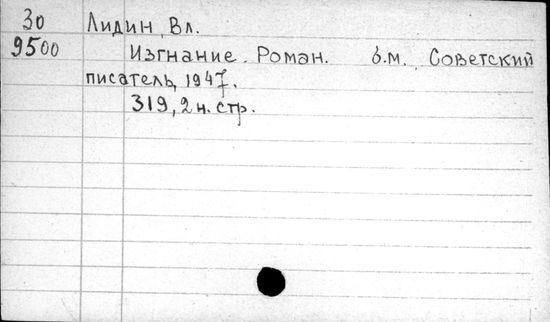 30 Лидин, Вл.
9500 Изгнание. Роман. б.м. Советский
писатель, 1947.
319, 2 н. стр.